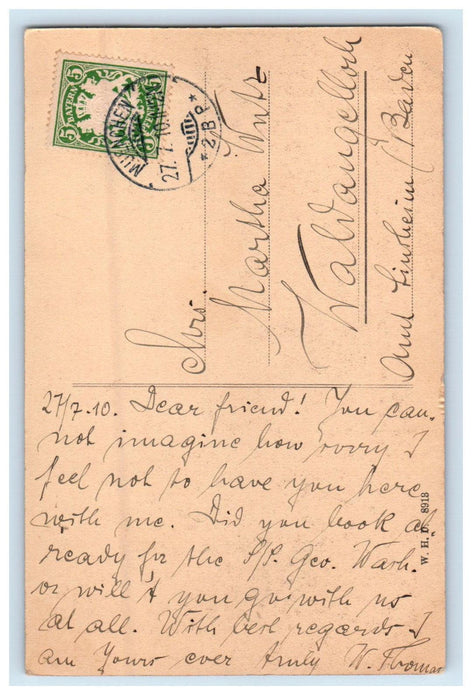 5 BAYERN 5
MÜNCHEN
27. 7.
* 2.B.P. *
Mrs.
Martha Wirtz
Waldangelloch
Amt Sinsheim / Baden
27/7.10. Dear friend! You can
not imagine how sorry I
feel not to have you here
with me. Did you book al-
ready for the S/S. Geo. Wash.
or will't you go with us
at all. With best regards I
am Yours ever truly W. Thomas
W. H. D. 8918